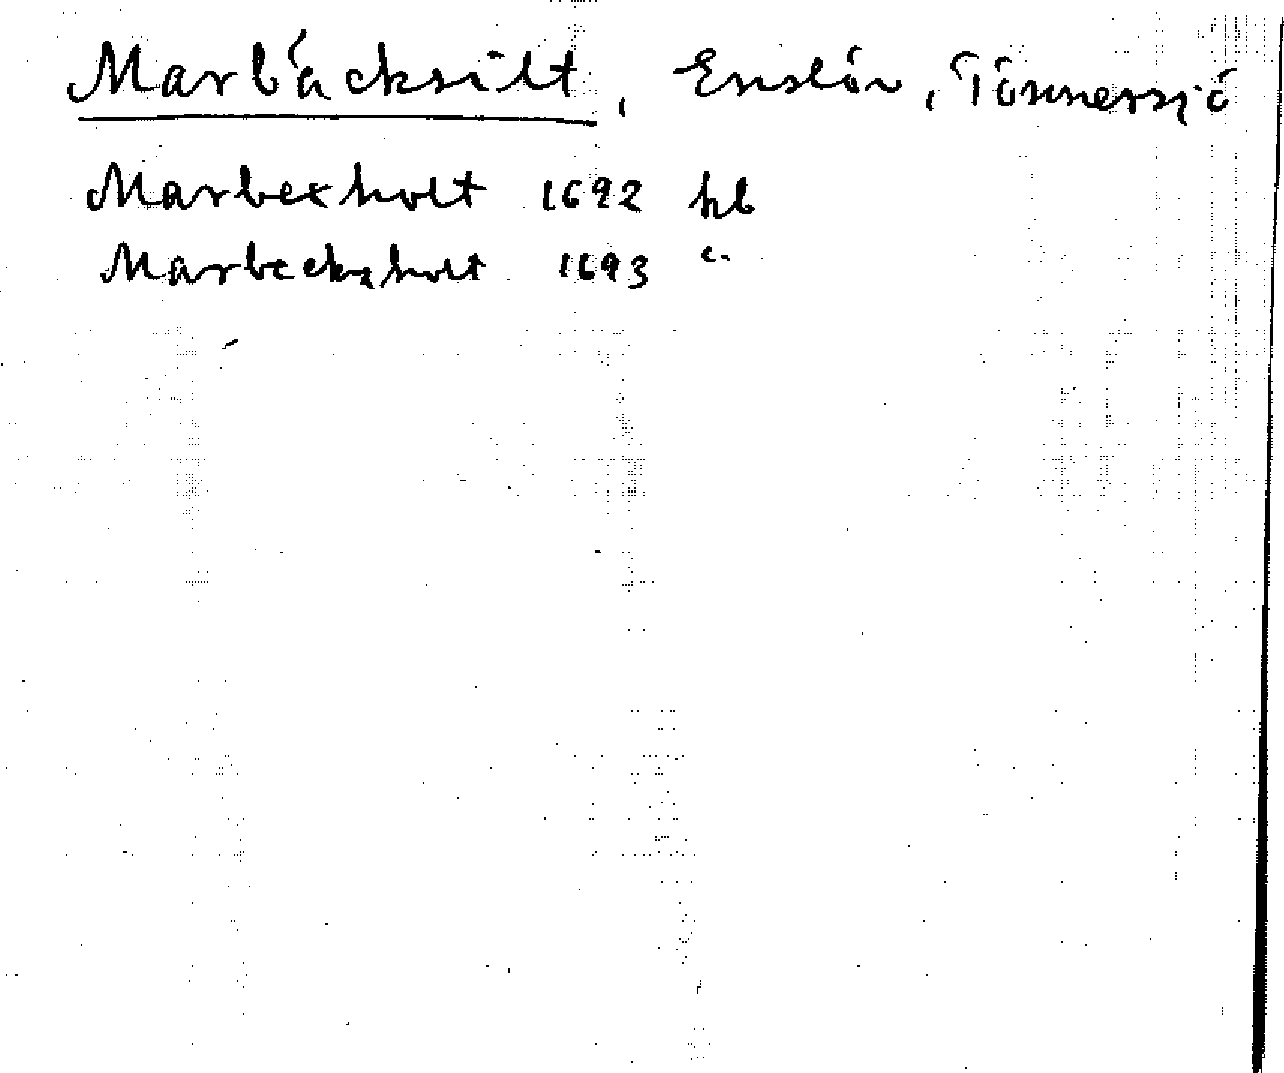 Marbäcksilt, Enslöv, Tönnersjö
Marbexholt 1692 kb
Marbecksholt 1693 "